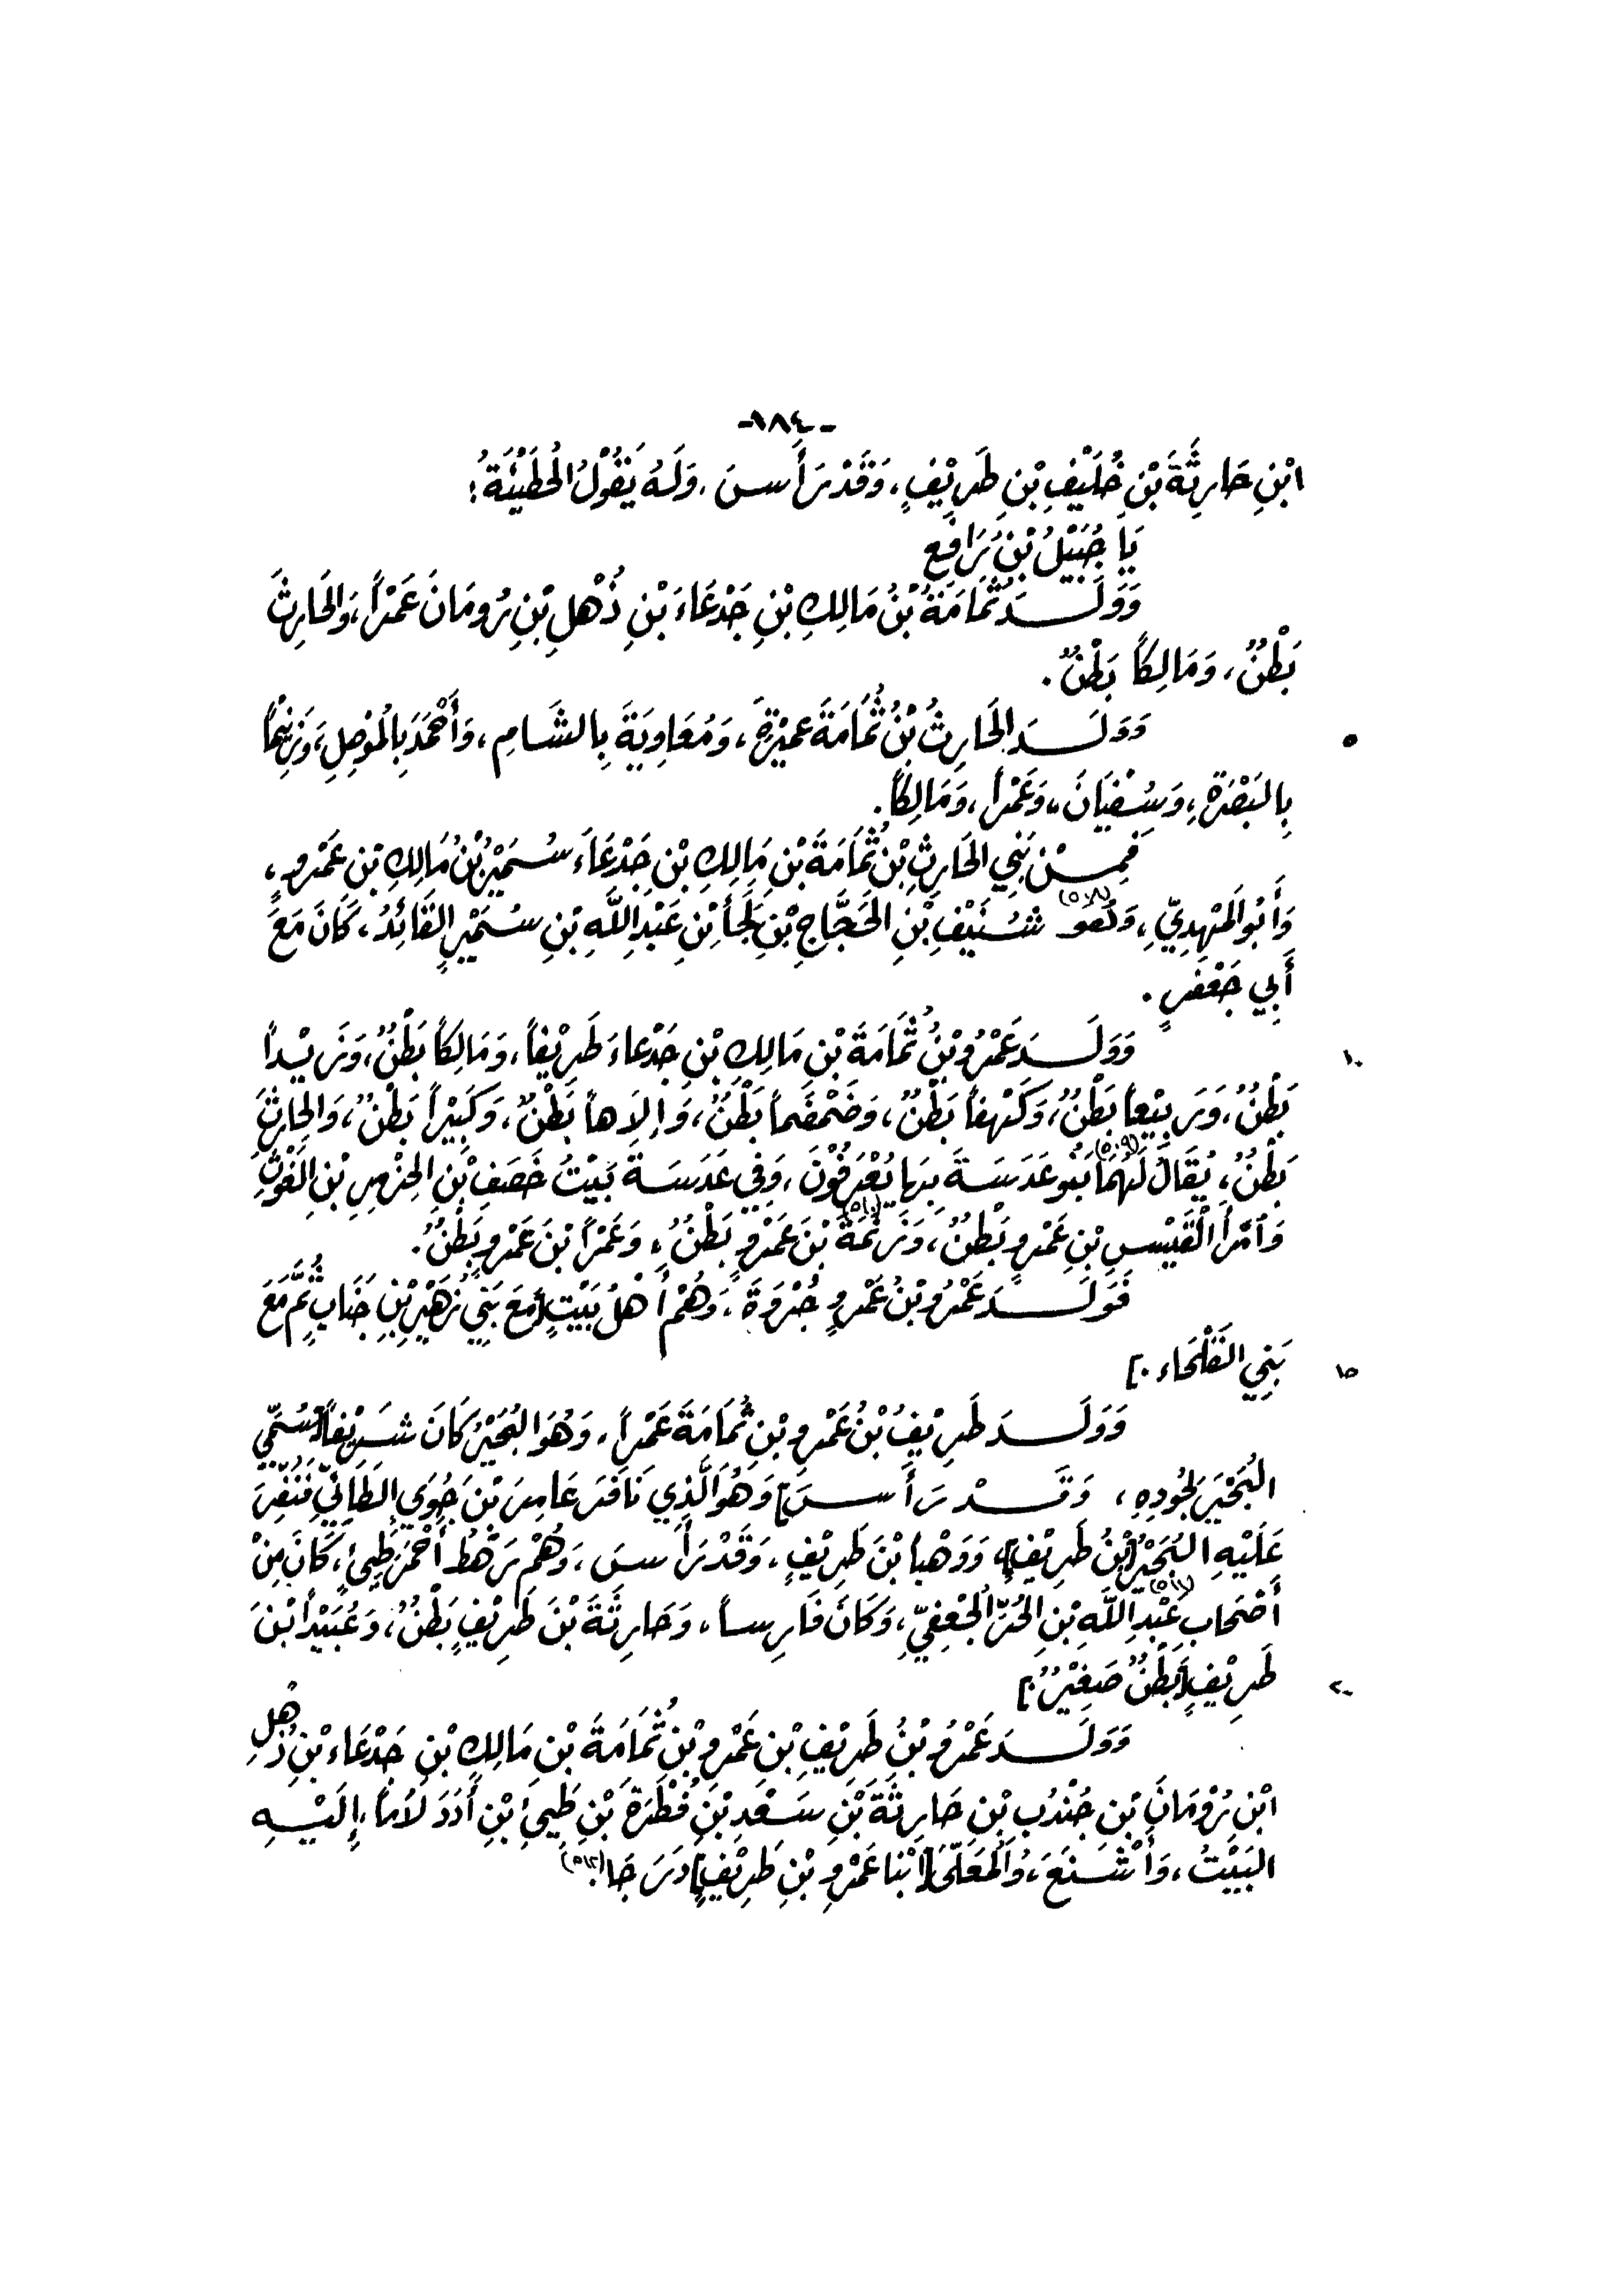 -١٨٤-
ابْنِ حَارِثَةَ بْنِ خُلَيْفِ بْنِ طَرِيْفٍ، وَقَدْ رَأَسَ، وَلَهُ يَقُوْلُ الْحُطَيْئَةُ:
يَا جُبَيْلُ بْنُ رَافِعِ
وَوَلَـدَ ثُمَامَةُ بْنُ مَالِكِ بْنِ جَدْعَاءَ بْنِ ذُهْلِ بْنِ رُومَانَ عَمْرَاً، وَالحَارِثَ
بَطْنٌ، وَمَالِكاً بَطْنٌ.
٥ وَوَلَـدَ الحَارِثُ بْنُ ثُمَامَةَ عَمِيْرَةَ، وَمُعَاوِيَةَ بِالشَّامِ، وَأَحْمَدَ بِالمُوْصِلِ، وَزَنِيْماً
بِالبَصْرَةِ، وَسُفْيَانَ، وَعَمْراً، وَمَالِكاً.
فَمِـنْ بَنِي الحَارِثِ بْنِ ثُمَامَةَ بْنِ مَالِكِ بْنِ جَدْعَاءَ سُمَيْرُ بْنُ مَالِكِ بْنِ عَمْرٍو،
وَأَبُو المَهْدِيِّ، وَهُوَ (٥٠٨) شُنَيْفِ بْنِ الحَجَّاجِ بْنِ لَجَأَ بْنِ عَبْدِ اللَّهِ بْنِ سُمَيْرٍ القَائِدُ، كَانَ مَعَ
أَبِي جَعْفَرٍ.
١٠ وَوَلَـدَ عَمْرُو بْنُ ثُمَامَةَ بْنِ مَالِكِ بْنِ جَدْعَاءَ طَرِيْفاً، وَمَالِكاً بَطْنٌ، وَزَيْداً
بَطْنٌ، وَرَبِيْعاً بَطْنٌ، وَكَهْفاً بَطْنٌ، وَضَمْضَماً بَطْنٌ، وَإِلَاهاً بَطْنٌ، وَكَبِيْراً بَطْنٌ، وَالحَارِثَ
بَطْنٌ، يُقَالُ لَهُمَا (٥٠٩) بَنُو عَدَسَةَ بِهَا يُعْرَفُوْنَ، وَفِي عَدَسَةَ بَيْتُ خَصَفِ بْنِ الحِنْصِرِ بْنِ الغَوْثِ
وَامْرَأَ الْقَيْسِ بْنِ عَمْرٍو بَطْنٌ، وَزُنْمَةَ (٥١٠) بْنَ عَمْرٍو بَطْنٌ، وَعَمْرَاً بْنَ عَمْرٍو بَطْنٌ.
فَوَلَـدَ عَمْرُو بْنُ عَمْرٍو جُرْوَةَ، وَهُمْ أَهْلُ بَيْتٍ [مَعَ بَنِي زُهَيْرِ بْنِ جَنَابٍ ثُمَّ مَعَ
١٥ بَنِي الفَلْحَاءِ.]
وَوَلَـدَ طَرِيْفُ بْنُ عَمْرِو بْنِ ثُمَامَةَ عَمْرَاً، وَهُوَ البُحَيْرُ كَانَ شَرِيْفاً [سُمِّيَ
البُحَيْرَ لِجُودِهِ، وَقَـدْ رَأَسَ] وَهُوَ الَّذِي نَافَرَ عَامِرَ بْنَ جُوَيٍ الطَّائِيِّ فَنُفِّرَ
عَلَيْهِ البُحَيْرُ [بْنُ طَرِيْفٍ]، وَوَهْباً بْنَ طَرِيْفٍ، وَقَدْ رَأَسَ، وَهُمْ رَهْطُ أَحْمَرَ طَيِّئٍ، كَانَ مِنْ
أَصْحَابِ (٥١١) عَبْدِ اللَّهِ بْنِ الحُرِّ الجُعْفِيِّ، وَكَانَ فَارِساً، وَحَارِثَةَ بْنَ طَرِيْفٍ بَطْنٌ، وَعُبَيْداً بْنَ
٢٠ طَرِيْفٍ [بَطْنٌ صَغِيْرٌ.]
وَوَلَـدَ عَمْرُو بْنُ طَرِيْفِ بْنِ عَمْرِو بْنِ ثُمَامَةَ بْنِ مَالِكِ بْنِ جَدْعَاءَ بْنِ ذُهْلِ
ابْنِ رُوْمَانَ بْنِ جُنْدُبِ بْنِ خَارِجَةَ بْنِ سَعْدِ بْنِ فُطْرَةَ بْنِ طَيِّئِ بْنِ أُدَدَ لَأْماً، إِلَيْـهِ
البَيْتُ، وَأَشْنَعَ، وَالمُعَلَّى [ابْنَا عَمْرِو بْنِ طَرِيْفٍ] دَرَجَا. (٥١٢)